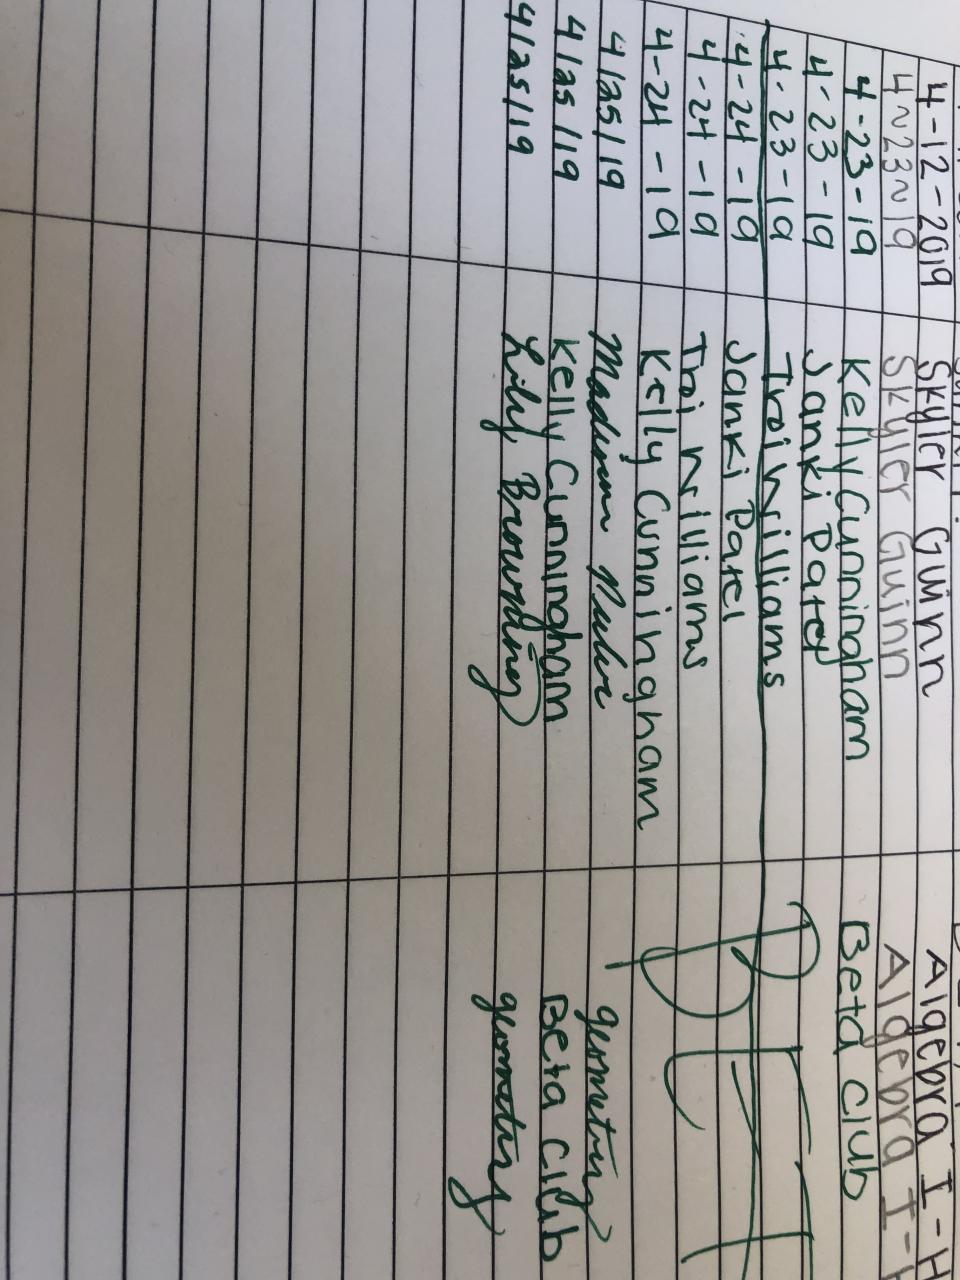 4-12-2019 Skyler Guinn Algebra I-H
4~23~19 Skyler Guinn Algebra I-
4-23-19 Kelly Cunningham Beta Club
4-23-19 Janki Patel
4-23-19 Troi Williams
4-24-19 Janki Patel
4-24-19 Troi Williams
4-24-19 Kelly Cunningham
4/25/19 geometry
4/25/19 Kelly Cunningham Beta Club
4/25/19 Lily Browning geometry